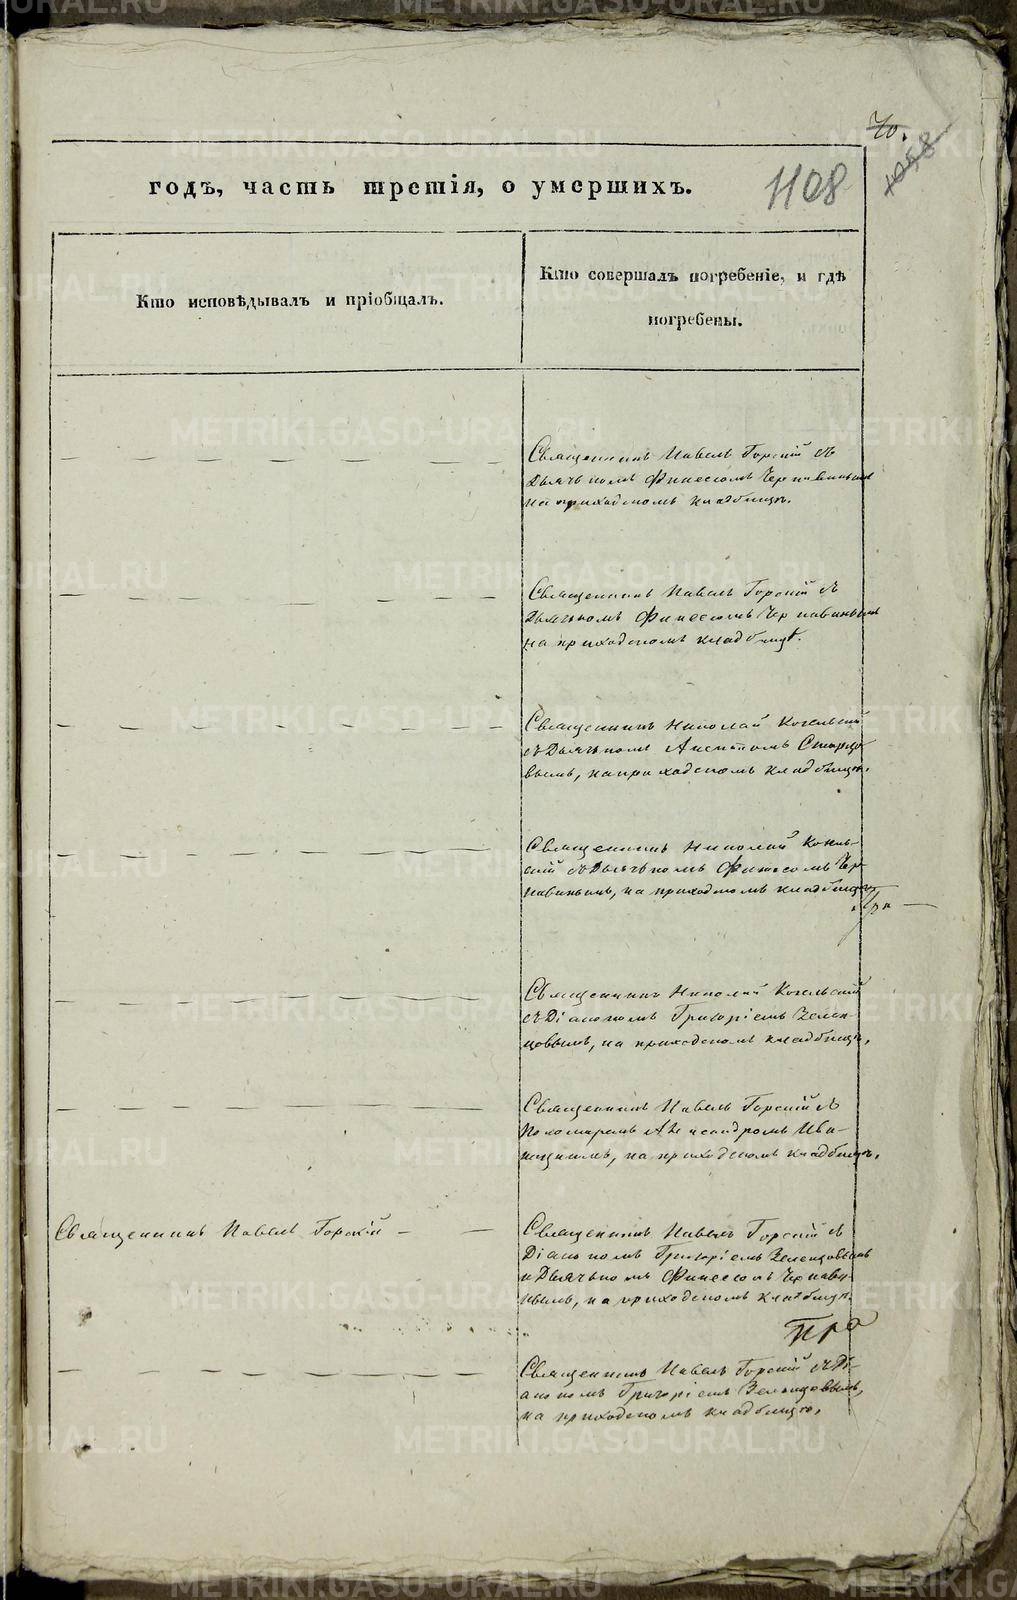 70.
1058
годъ, часть третія, о умершихъ.
1108
Кто исповѣдывалъ и пріобщалъ.
Кто совершалъ погребеніе, и гдѣ
погребены.
Священникъ Павелъ Горскій съ
Дьячькомъ Финесомъ Чернавинымъ
на приходскомъ кладбищѣ.
Священникъ Павелъ Горскій съ
Дьячькомъ Финесомъ Чернавинымъ
на приходскомъ кладбищѣ.
Священникъ Николай Когельскій
съ Дьячькомъ Старцо-
вымъ, на приходскомъ кладбищѣ.
Священникъ Николай Когель-
скій съ Дьячькомъ Финесомъ Чер-
навинымъ, на приходскомъ кладбищѣ.
Священникъ Николай Когельскій
съ Діакономъ Григоріемъ Зелен-
цовымъ, на приходскомъ кладбищѣ.
Священникъ Павелъ Горскій съ
Пономаремъ Александромъ Ива-
ницкимъ, на приходскомъ кладбищѣ.
Священникъ Павелъ Горскій
Священникъ Павелъ Горскій съ
Діакономъ Григоріемъ Зеленцовымъ
и Дьячькомъ Финесомъ Чернави-
нымъ, на приходскомъ кладбищѣ.
Про
Священникъ Павелъ Горскій съ Ді-
акономъ Григоріемъ Зеленцовымъ,
на приходскомъ кладбищѣ.
METRIKI.GASO-URAL.RU